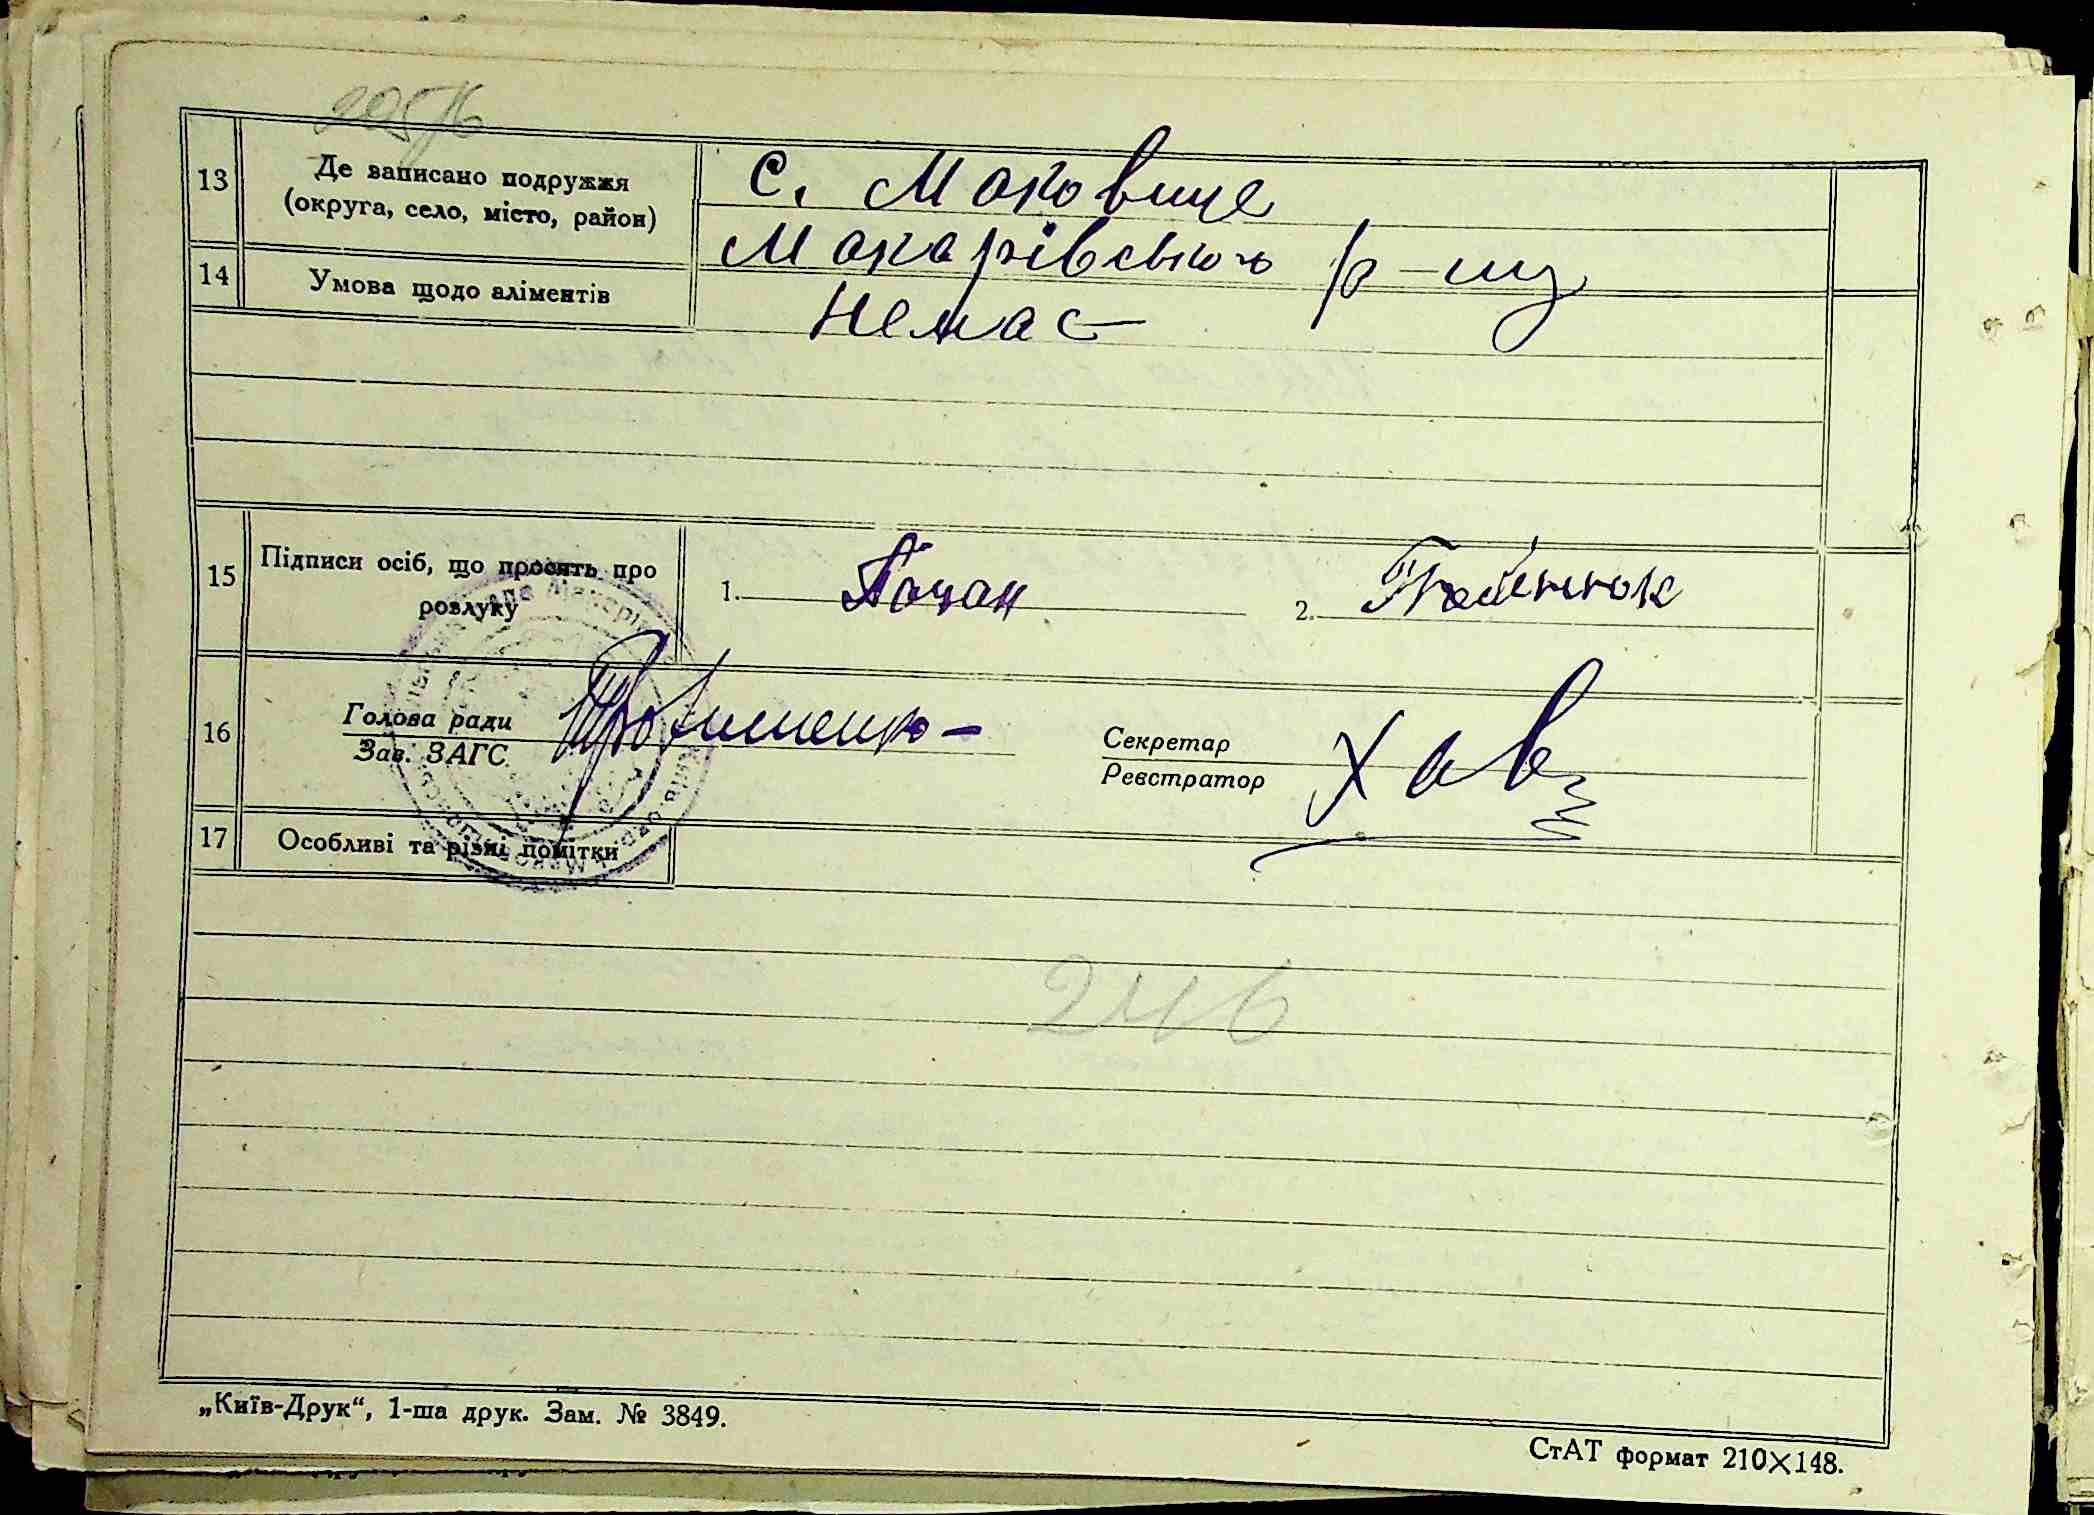 13
Де записано подружжя
(округа, село, місто, район)
с. Маковище
Макарівського р-ну
14
Умова щодо аліментів
Немає
15
Підписи осіб, що просять про
розлуку
1.
2.
16
Голова ради
Зав. ЗАГС
Секретар
Реєстратор
Хав
17
Особливі та різні помітки
246
„Київ-Друк“, 1-ша друк. Зам. № 3849.
СтАТ формат 210×148.